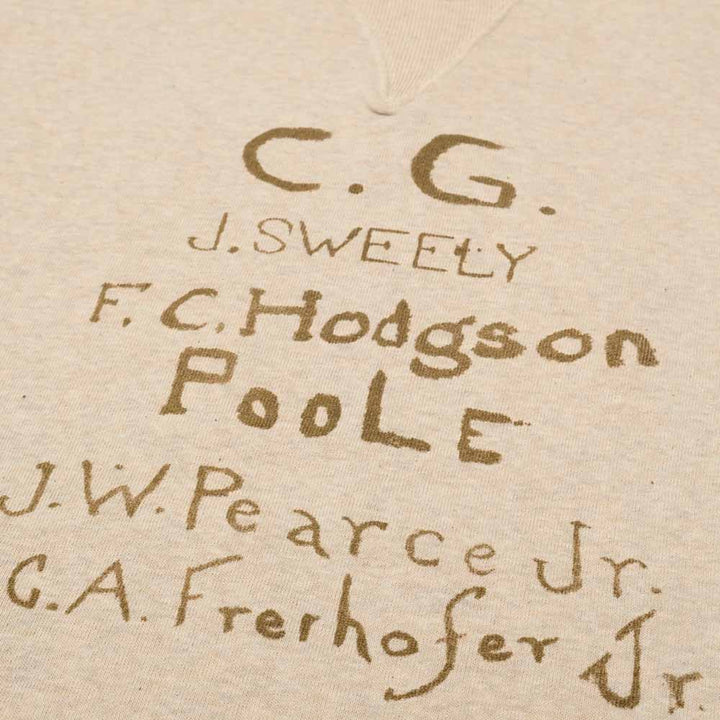 C. G.
J. SWEELY
F. C. Hodgson
POOLE
J. W. Pearce Jr.
C. A. Freihofer Jr.